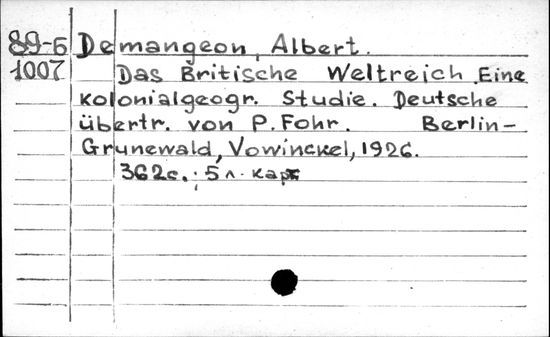 89-5 Demangeon, Albert.
1007 Das Britische Weltreich. Eine
kolonialgeogr. Studie. Deutsche
übertr. von P. Fohr. Berlin-
Grunewald, Vowinckel, 1926.
362с.; 5 л. карт